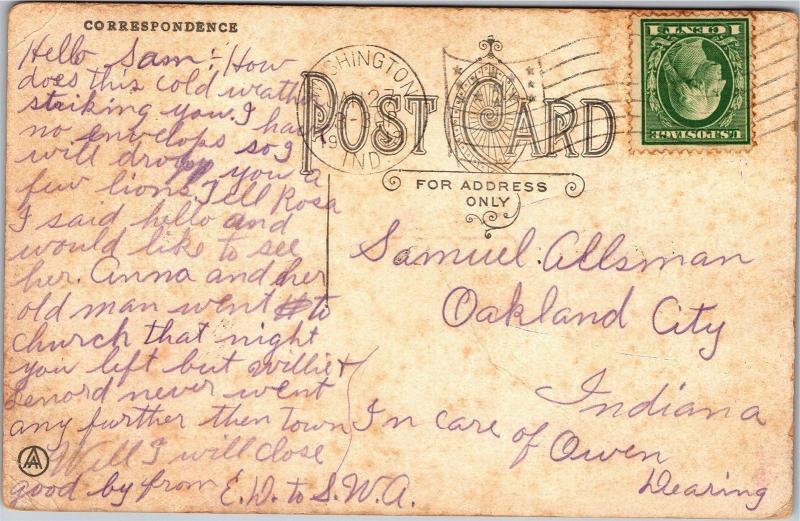 CORRESPONDENCE
Hello Sam:- How
does this cold weather
striking you. I have
no envelops so I
will droop you a
few lions. Tell Rosa
I said hello and
would like to see
her. Anna and her
old man went to
church that night
you left but Willie +
Lenord never went
any further then town
Well I will close
good by from E.D. to S.W.A.
WASHINGTON
27
19
IND.
POST CARD
FOR ADDRESS
ONLY
U.S. POSTAGE
1 CENT 1
Samuel Allsman
Oakland City
Indiana
In care of Owen
Dearing